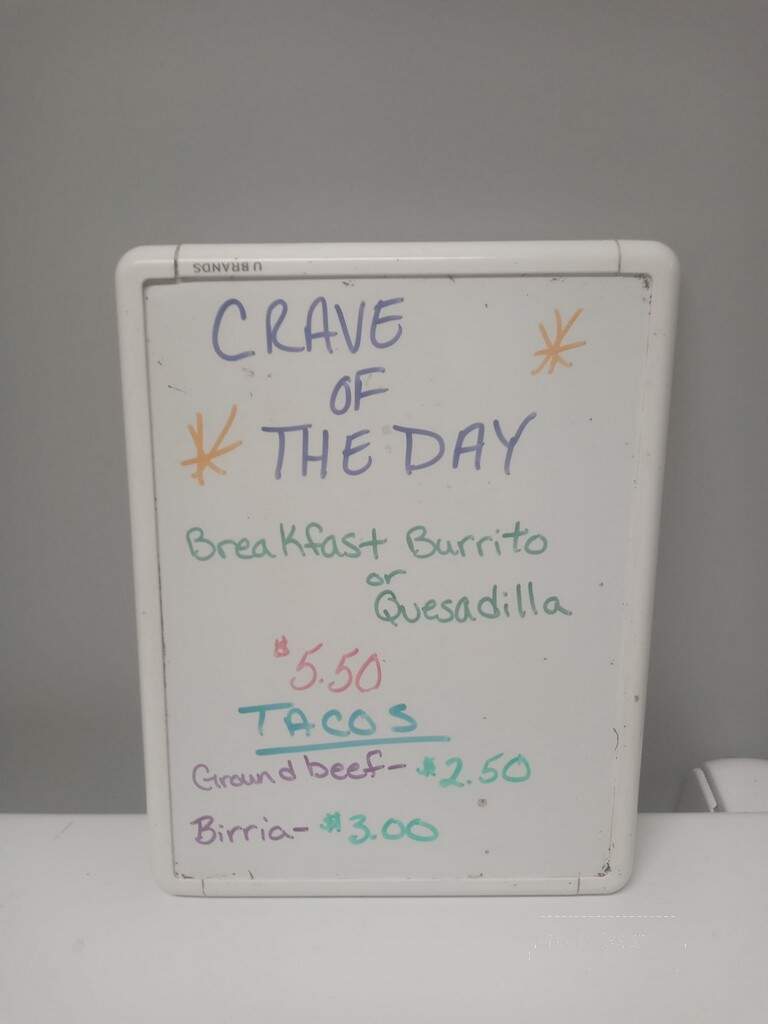 U BRANDS
CRAVE
OF
THE DAY
Breakfast Burrito
or
Quesadilla
$5.50
TACOS
Ground beef- $2.50
Birria- $3.00